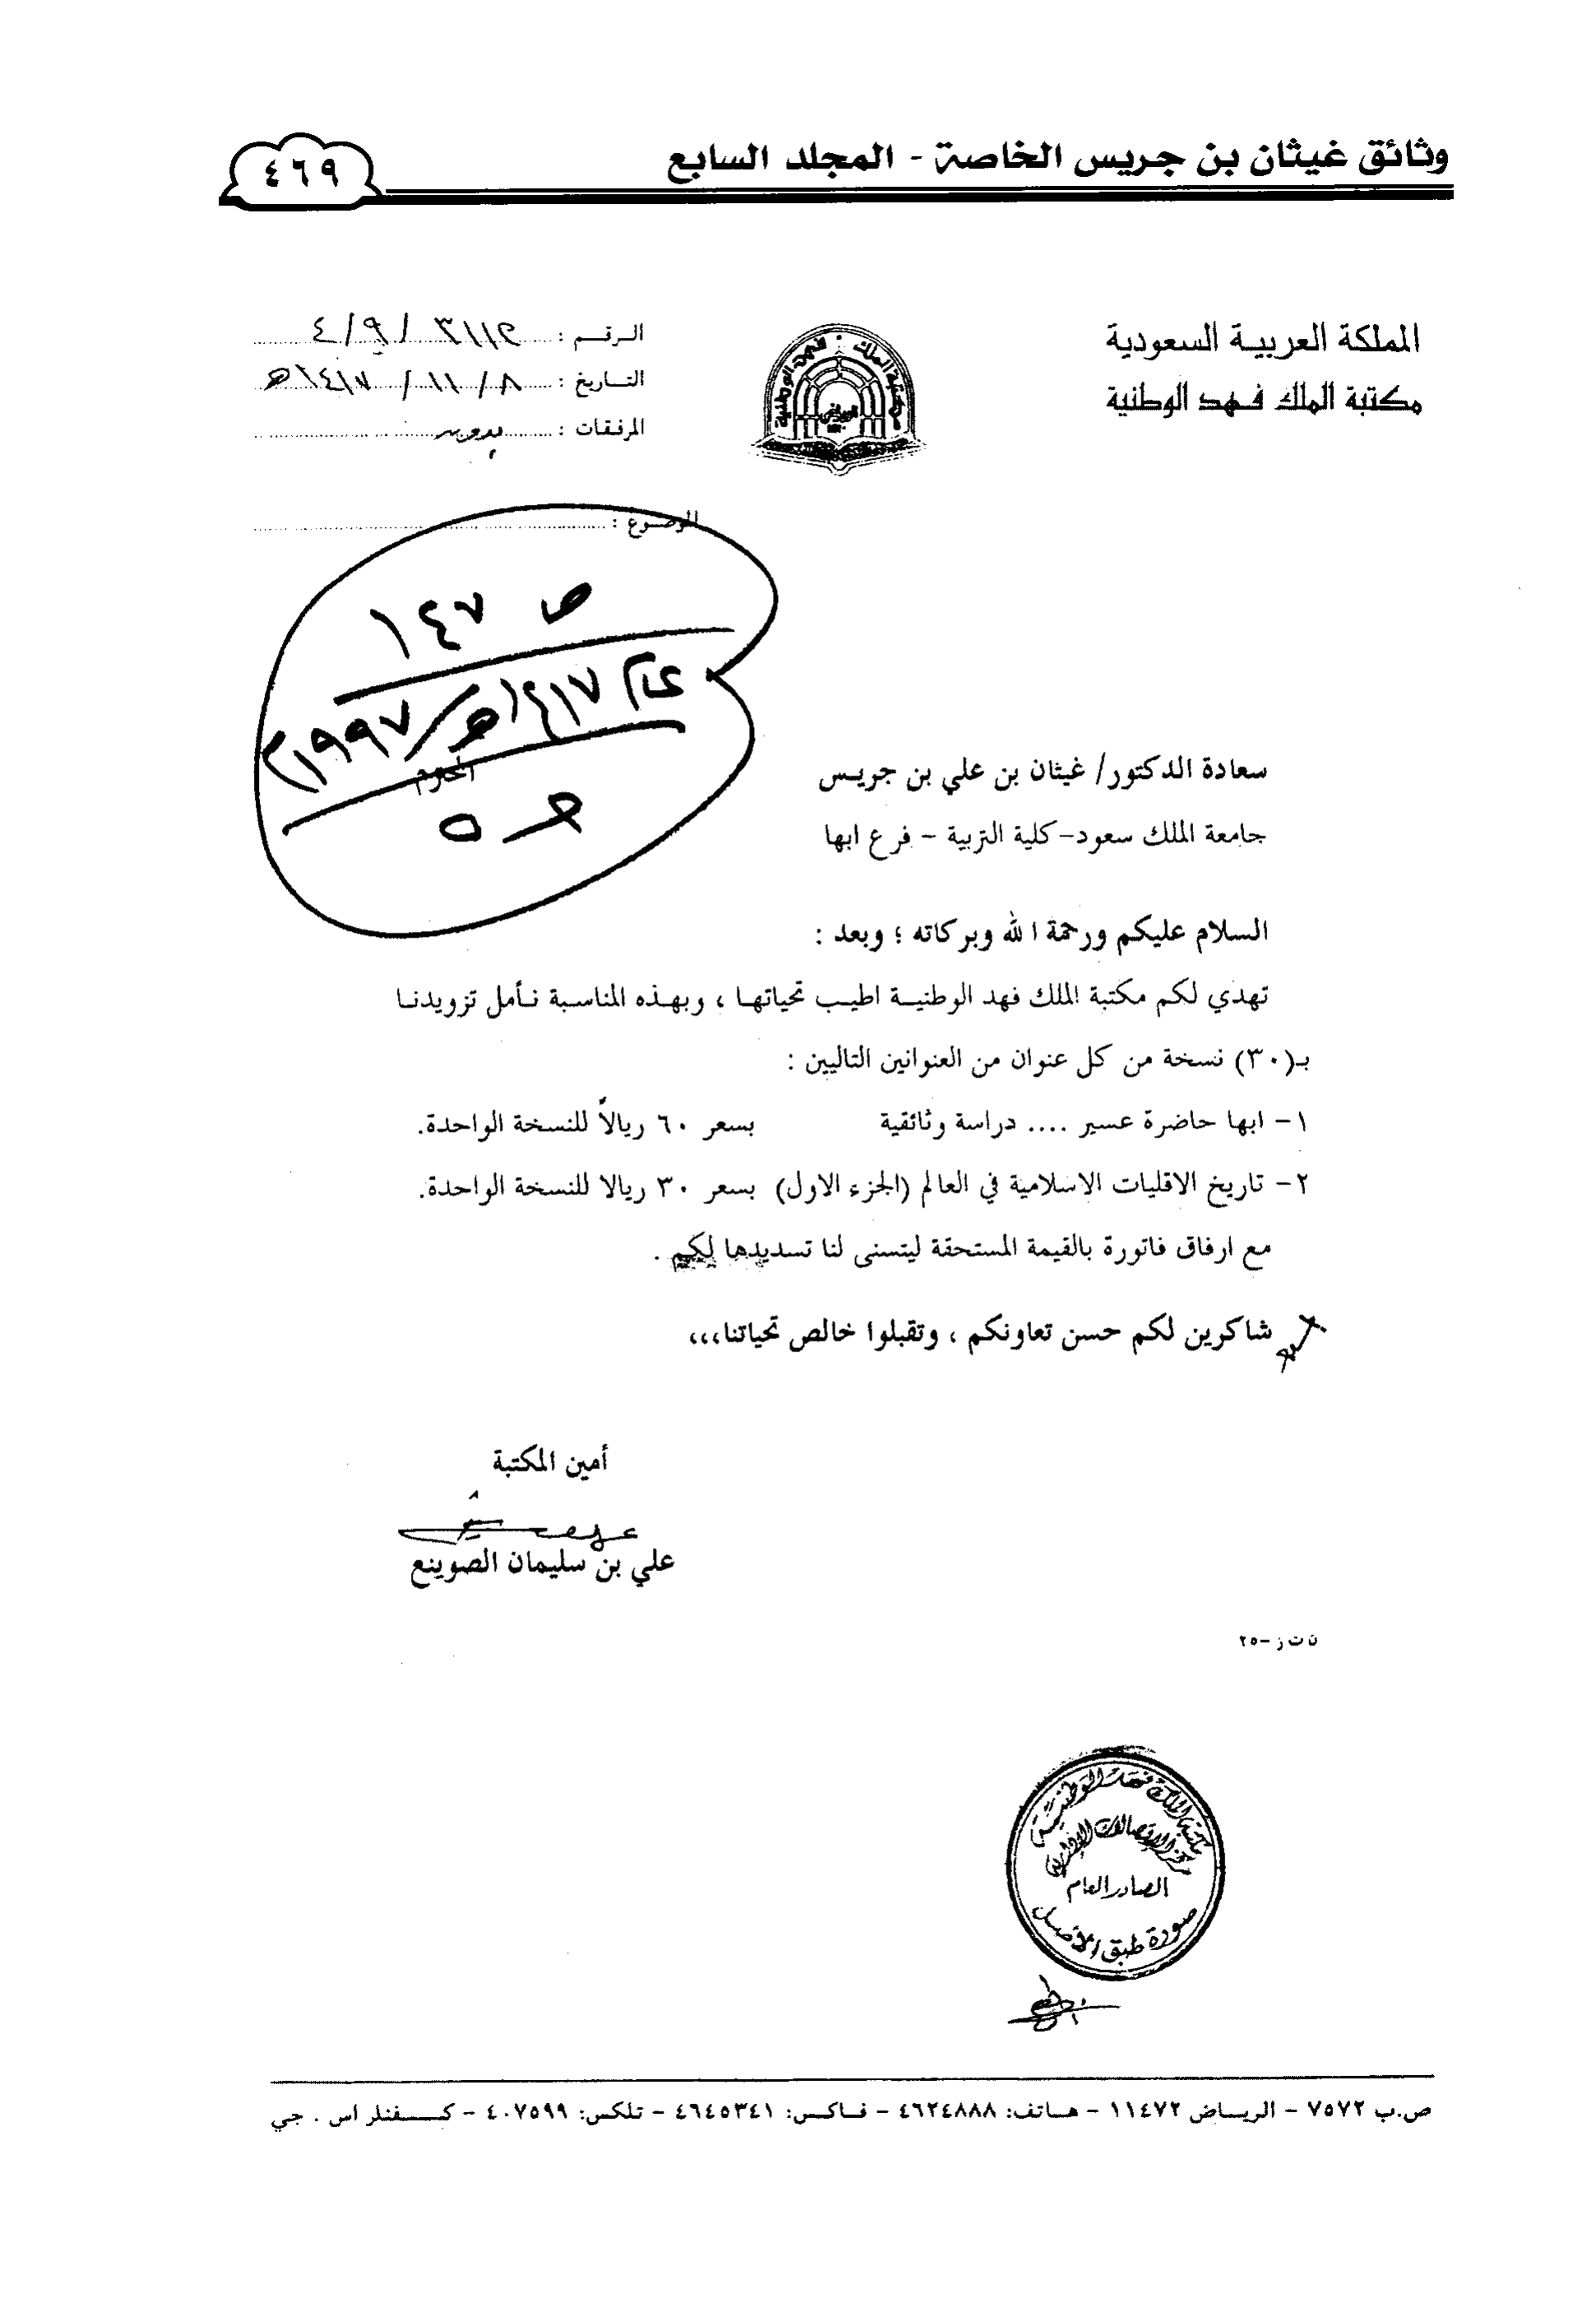 وثائق غيثان بن جريس الخاصة - المجلد السابع
٤٦٩
المملكة العربية السعودية
مكتبة الملك فهد الوطنية
مكتبة الملك فهد الوطنية
الرقم :
التاريخ : ٨ / ١١ / ١٤١٧هـ
المرفقات : بدون
الموضوع :
ص ١٤٧
عام ١٤١٧هـ/١٩٩٧م
سعادة الدكتور/ غيثان بن علي بن جريس المحترم
جامعة الملك سعود-كلية التربية - فرع ابها
السلام عليكم ورحمة الله وبركاته ؛ وبعد :
تهدي لكم مكتبة الملك فهد الوطنية اطيب تحياتها ، وبهذه المناسبة نأمل تزويدنا
بـ(٣٠) نسخة من كل عنوان من العنوانين التاليين :
١- ابها حاضرة عسير .... دراسة وثائقية بسعر ٦٠ ريالاً للنسخة الواحدة.
٢- تاريخ الاقليات الاسلامية في العالم (الجزء الاول) بسعر ٣٠ ريالا للنسخة الواحدة.
مع ارفاق فاتورة بالقيمة المستحقة ليتسنى لنا تسديدها لكم .
شاكرين لكم حسن تعاونكم ، وتقبلوا خالص تحياتنا،،،
أمين المكتبة
علي بن سليمان الصوينع
ن ت ز -٢٥
مكتبة الملك فهد الوطنية
مركز الاتصالات الإدارية
الصادر العام
صورة طبق الأصل
ص.ب ٧٥٧٢ - الرياض ١١٤٧٢ - هاتف: ٤٦٢٤٨٨٨ - فاكس: ٤٦٤٥٣٤١ - تلكس: ٤٠٧٥٩٩ - كفنلر اس . جي